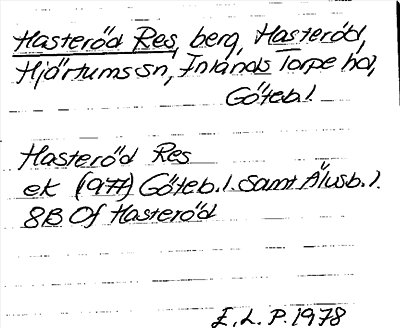 Hasteröd Res, berg, Hasteröd,
Hjärtums sn, Inlands Torpe hd,
Göteb. l.
Hasteröd Res
ek (1977) Göteb. l. samt Älvsb. l.
8B 0f Hasteröd
E. L. P. 1978